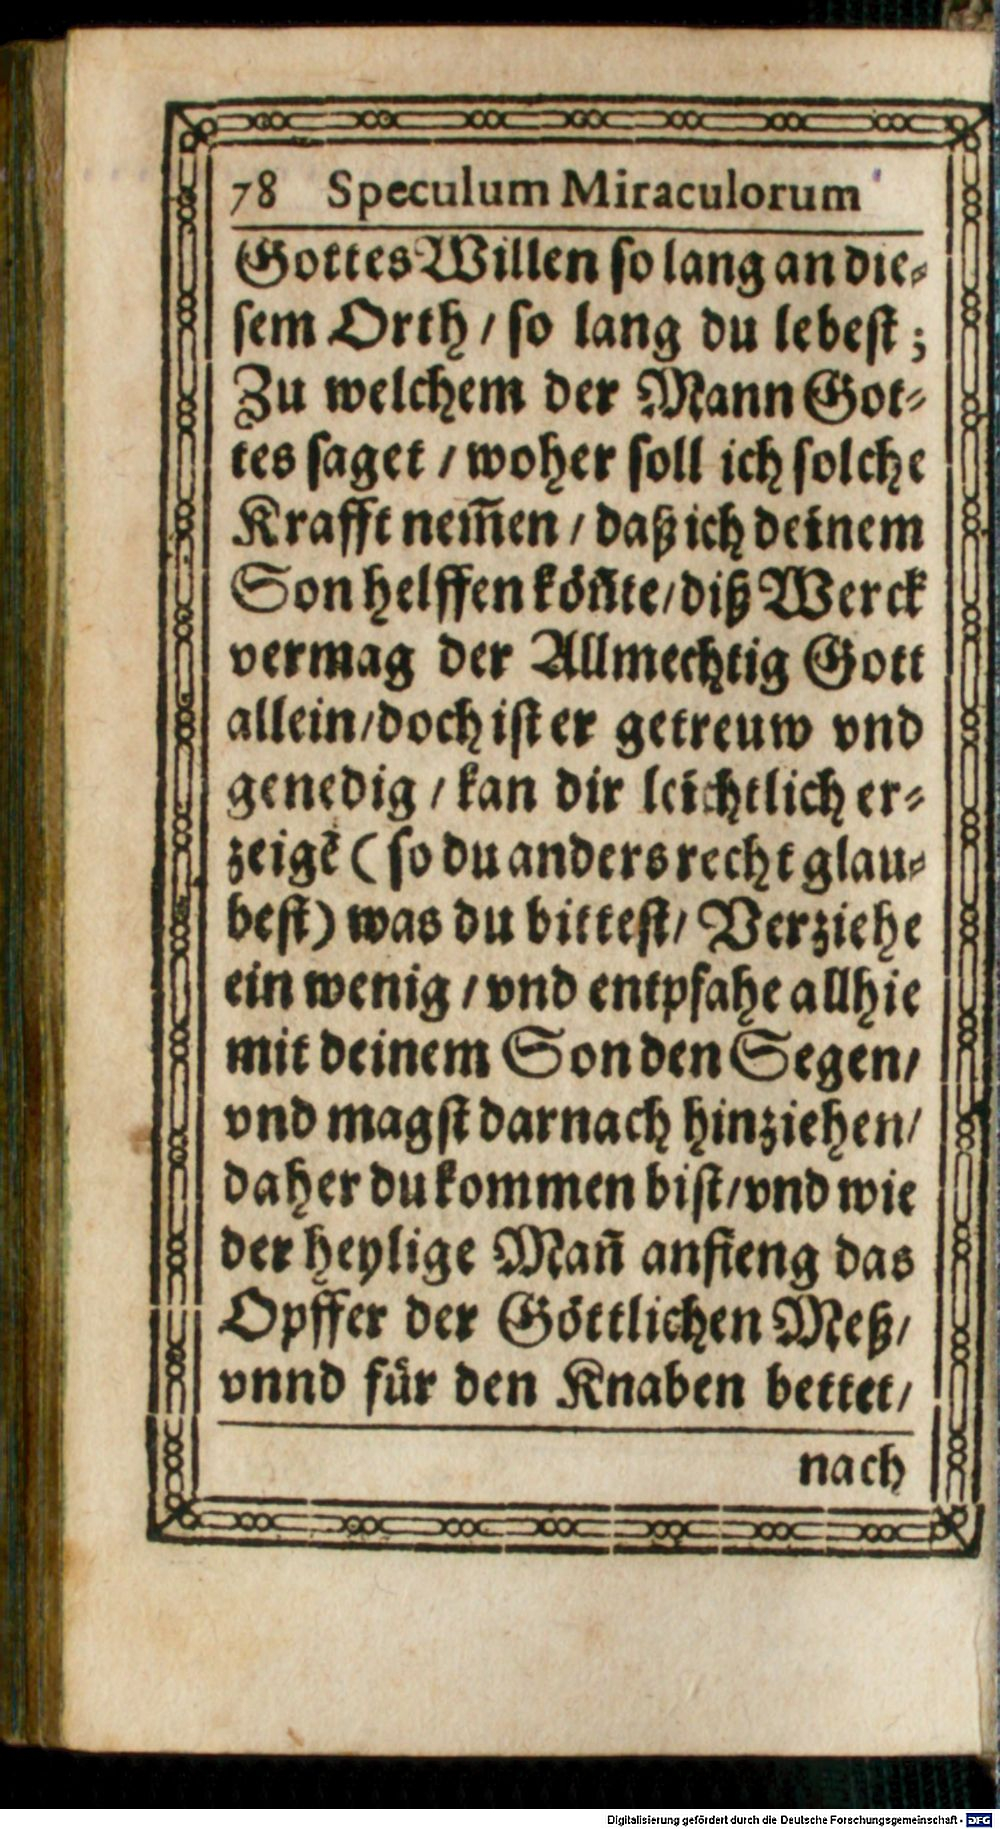 78 Speculum Miraculorum
Gottes Willen so lang an die-
sem Orth / so lang du lebest ;
Zu welchem der Mann Got-
tes saget / woher soll ich solche
Krafft nem̃en / daß ich deinem
Son helffen köñte / diß Werck
vermag der Allmechtig Gott
allein / doch ist er getreuw vnd
genedig / kan dir leichtlich er-
zeigẽ ( so du anders recht glau-
best ) was du bittest / Verziehe
ein wenig / vnd entpfahe allhie
mit deinem Son den Segen /
vnd magst darnach hinziehen /
daher du kommen bist / vnd wie
der heylige Mañ anfieng das
Opffer der Göttlichen Meß /
vnnd für den Knaben bettet /
nach
Digitalisierung gefördert durch die Deutsche Forschungsgemeinschaft - DFG